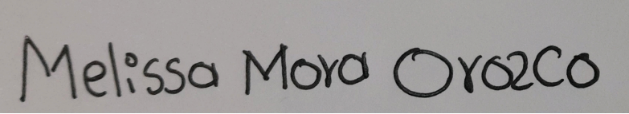 Melissa Mora Orozco